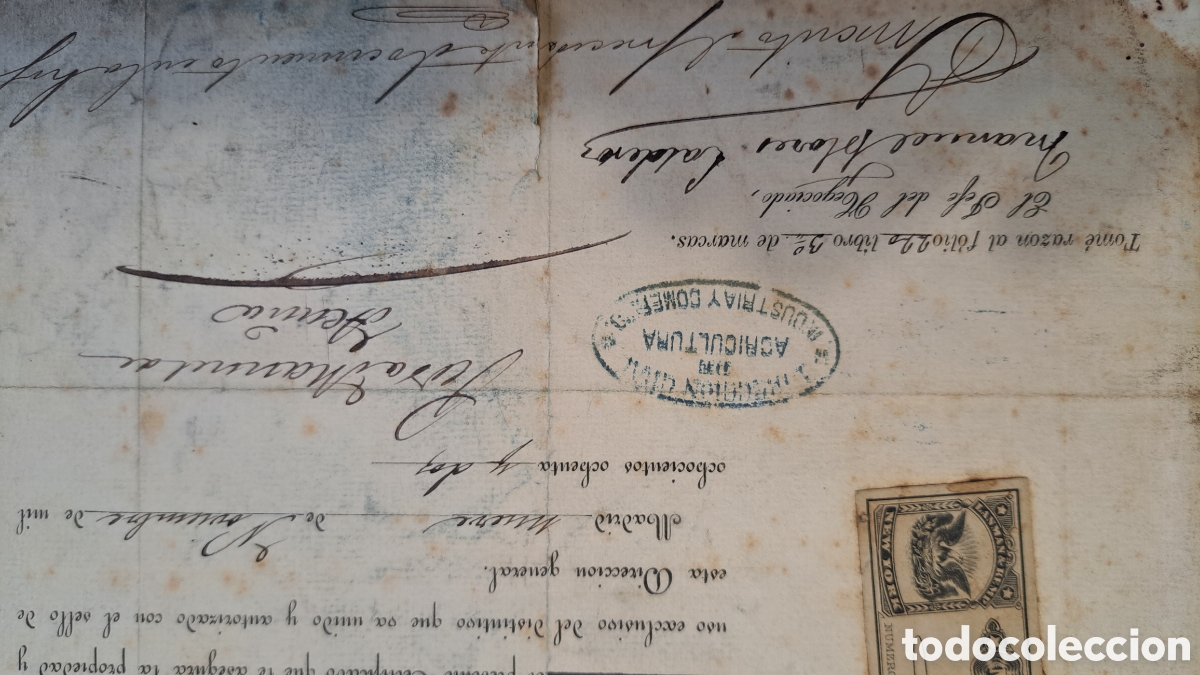 el presente Certificado que le asegura la propiedad y
uso exclusivo del distintivo que va unido y autorizado con el sello de
esta Direccion general.
Madrid nueve de Noviembre de mil
ochocientos ochenta y dos
DIRECCION GRAL
DE
AGRICULTURA
INDUSTRIA Y COMERCIO
Tomé razon al fólio 220 libro 3º de marcas.
El Jefe del Negociado,
Manuel Flores Calderon
el presente documento en la
NEW YORK
NUMERO
todocoleccion